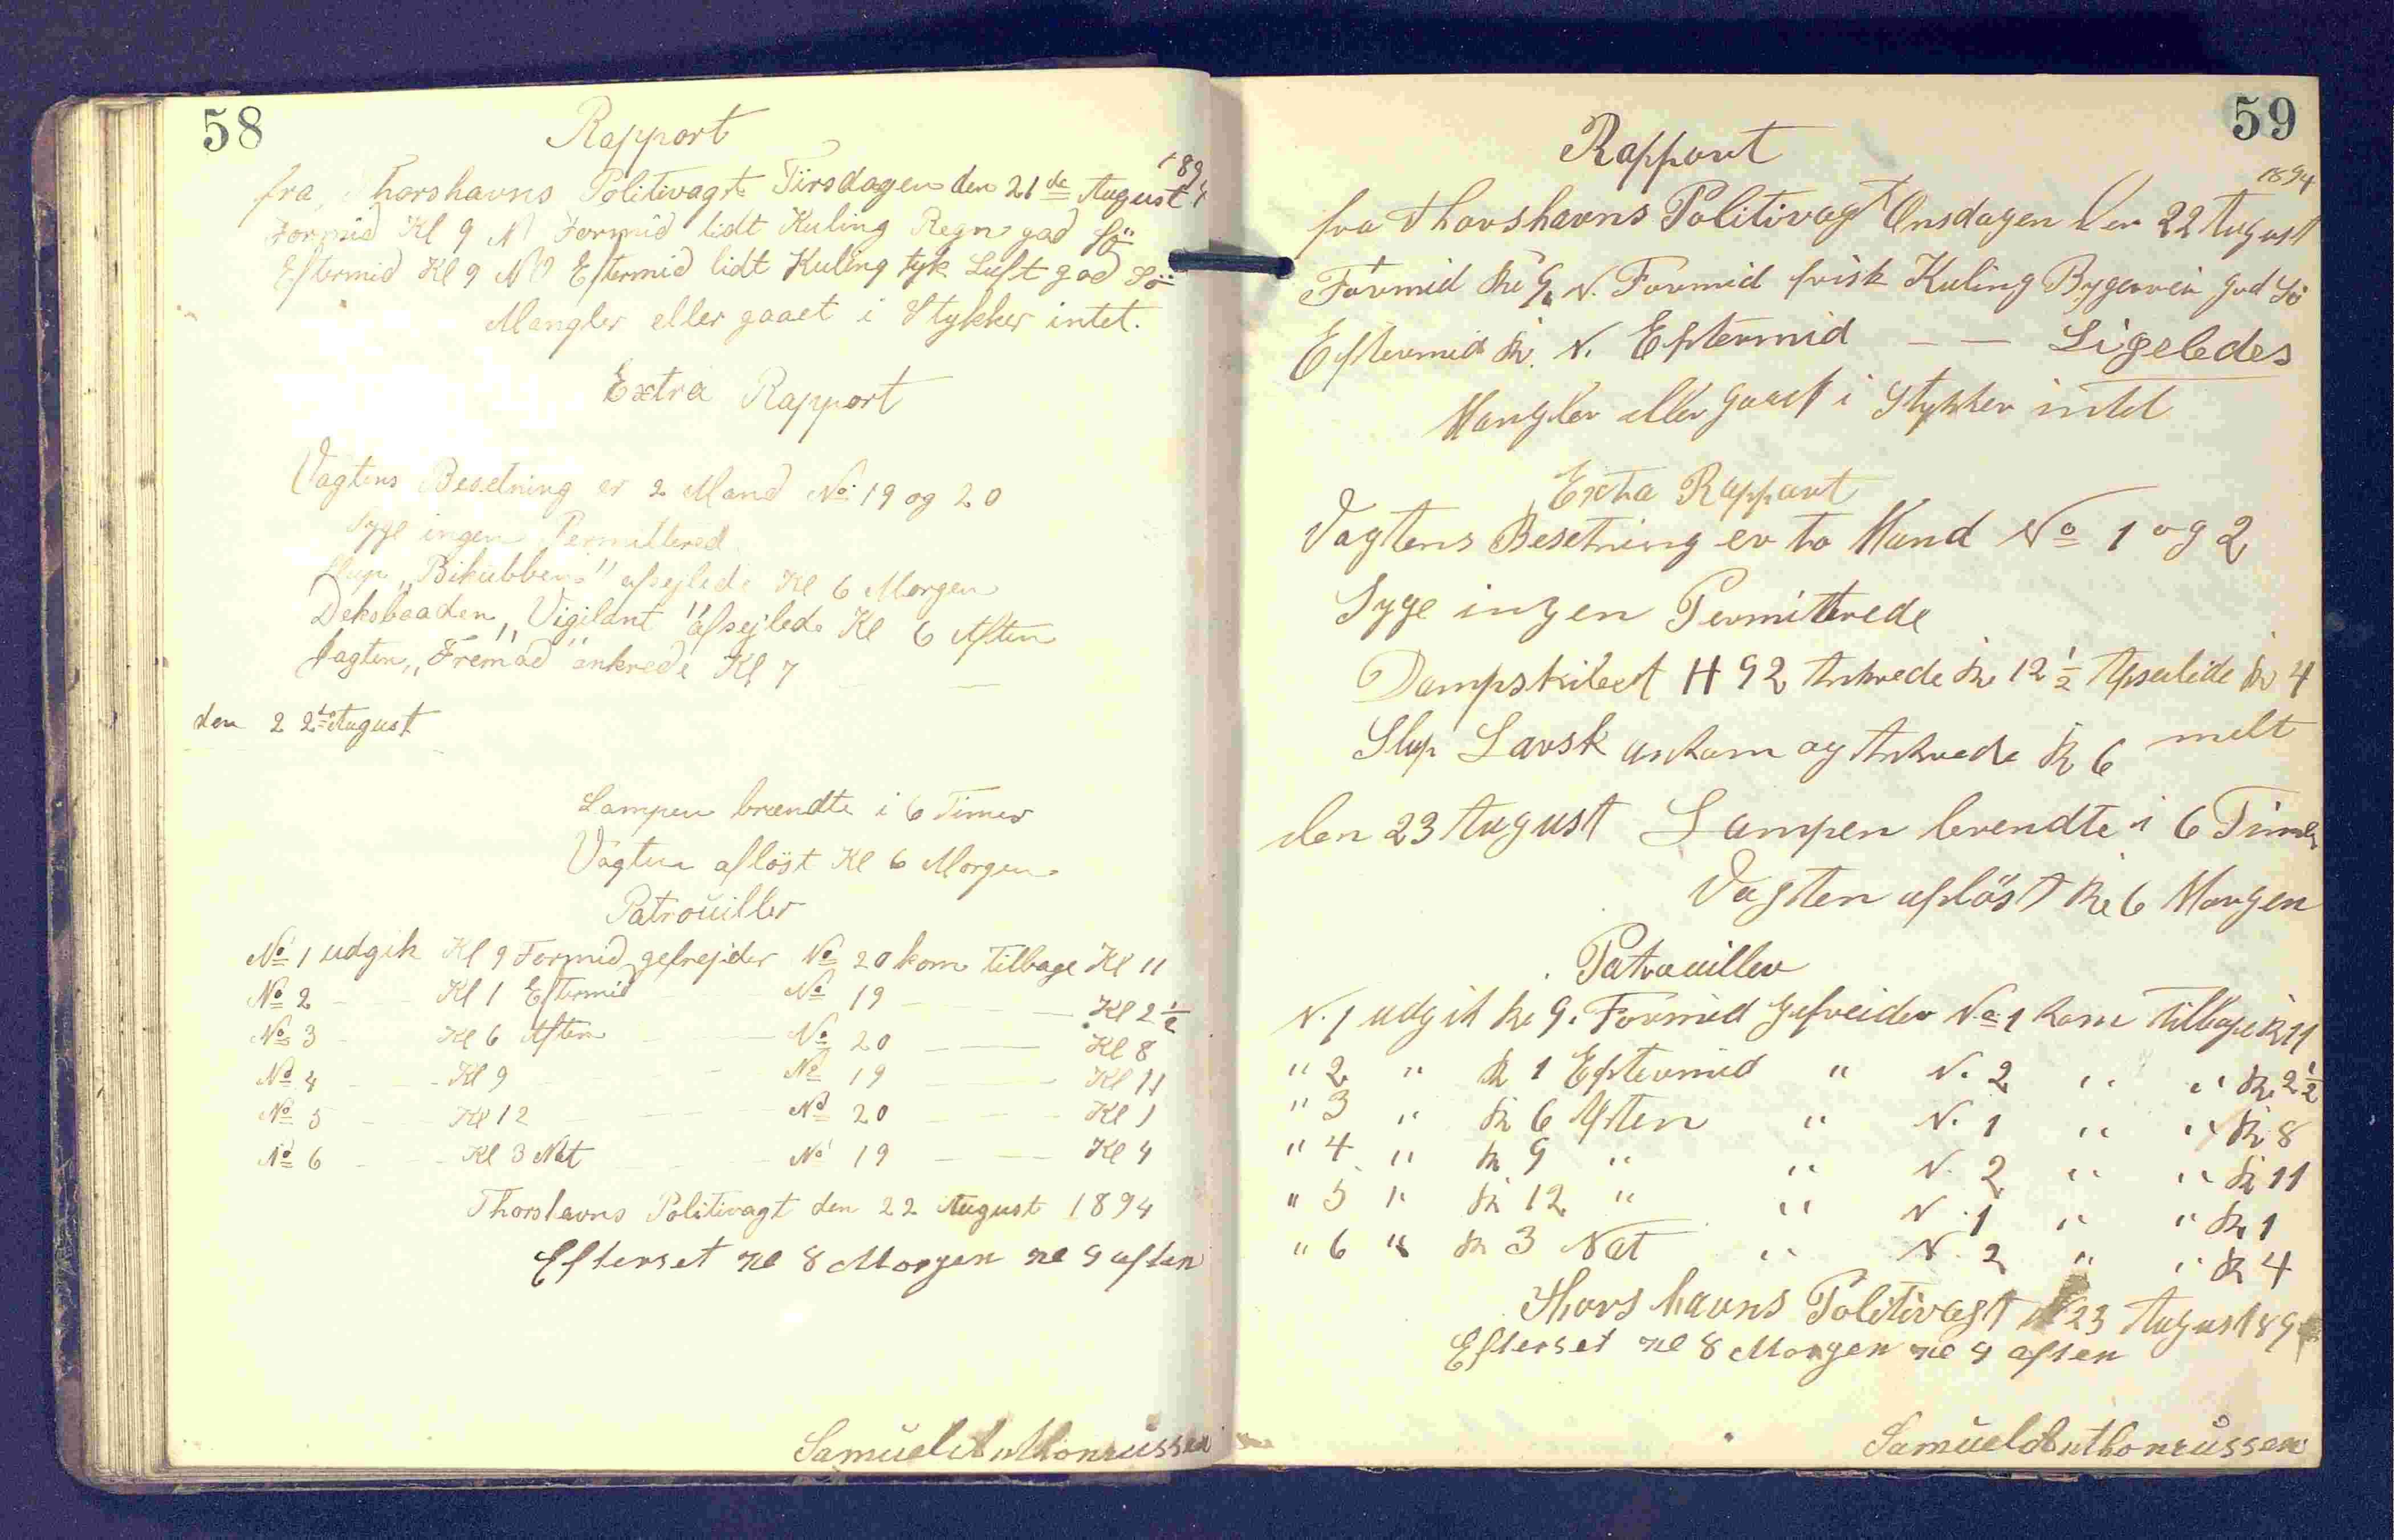 58
Rapport
1894
fra Thorshavns Politivagt Tirsdagen den 21de August
Formid Kl 9 N Formid lidt Kuling Regn god Sö
Eftermid Kl 9 NV Eftermid lidt Kuling tyk Luft god Sö
Mangler eller gaaet i Stykker intet.
Extra Rapport
Vagtens Besetning er 2 Mand No 19 og 20
Syge ingen Permittered
Slup „Bikubben" afsejlede Kl 6 Morgen
Deksbaaden „Vigilant" afsejlede Kl 6 Aften
Jagten „Fremad" ankrede Kl 7 — —
den 22 August
Lampen brændte i 6 Timer
Vagten aflöst Kl 6 Morgen
Patrouiller
No 1 udgik Kl 9 Formid gefrejder No 20 kom Tilbage Kl 11
No 2 — Kl 1 Eftermid — No 19 — — Kl 2½
No 3 — Kl 6 Aften — No 20 — — Kl 8
No 4 — Kl 9 — No 19 — — Kl 11
No 5 — Kl 12 — No 20 — — Kl 1
No 6 — Kl 3 Nat — No 19 — — Kl 4
Thorshavns Politivagt den 22 August 1894
Efterset Kl 8 Morgen Kl 9 aften
Samuel Anthoniussen
59
Rapport
1894
fra Thorshavns Politivagt Onsdagen Den 22 August
Formid Kl 9 N. Formid frisk Kuling Bygerveir god Sö
Eftermid Kl. N. Eftermid — — Ligeledes
Mangler eller gaaet i Stykker intet
Extra Rappart
Vagtens Besetning er to Mand No 1 og 2
Syge ingen Permitterede
Dampskibet H 92 Ankrede Kl 12½ Afseilede Kl 4
Slup Lavsk ankom og Ankrede Kl 6 melt
den 23 August Lampen brendte i 6 Timer
Vagten aflöst Kl 6 Morgen
Patrouiller
N. 1 udgik Kl 9. Formid Gefreider No 1 kom Tilbage Kl 11
" 2 " Kl 1 Eftermid " N. 2 " " Kl 2½
" 3 " Kl 6 Aften " N. 1 " " Kl 8
" 4 " Kl 9 " " N. 2 " " Kl 11
" 5 " Kl 12 " " N. 1 " " Kl 1
" 6 " Kl 3 Nat " N. 2 " " Kl 4
Thorshavns Politivagt 23 August 894
Efterset Kl 8 Morgen Kl 9 aften
Samuel Anthoniussen